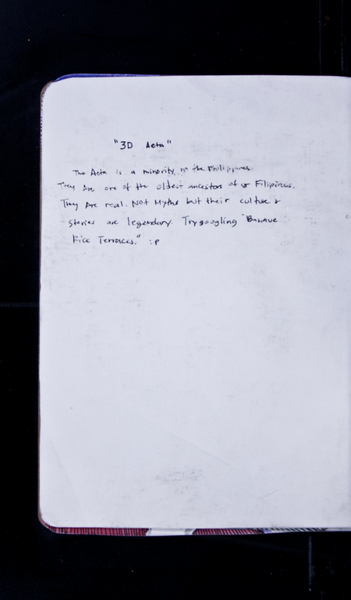 "3D Aeta"
The Aeta is a minority in the Philippines.
They are one of the oldest ancestors of us Filipinos.
They are real. NOT Myths but their culture &
stories are legendary. Try googling "Banaue
Rice Terraces." :P